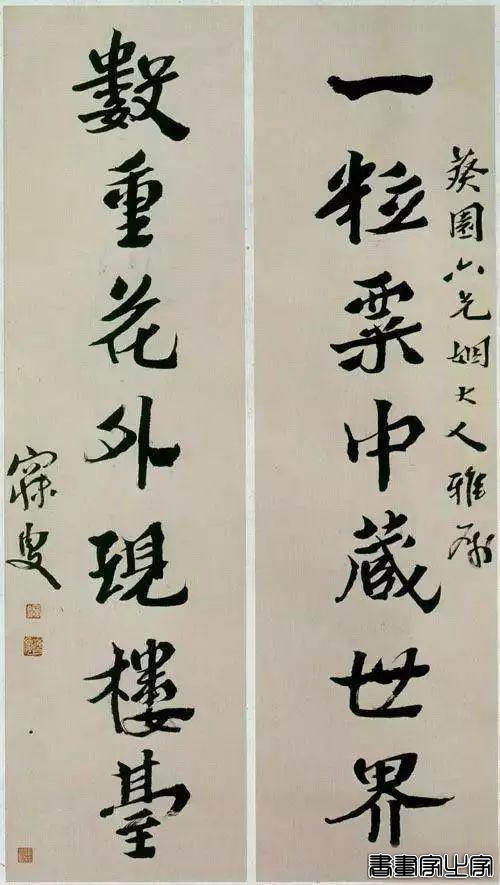 葵園六兄姻大人雅属
一粒粟中蔵世界
數重花外現樓臺
寐叟
書畫家之家